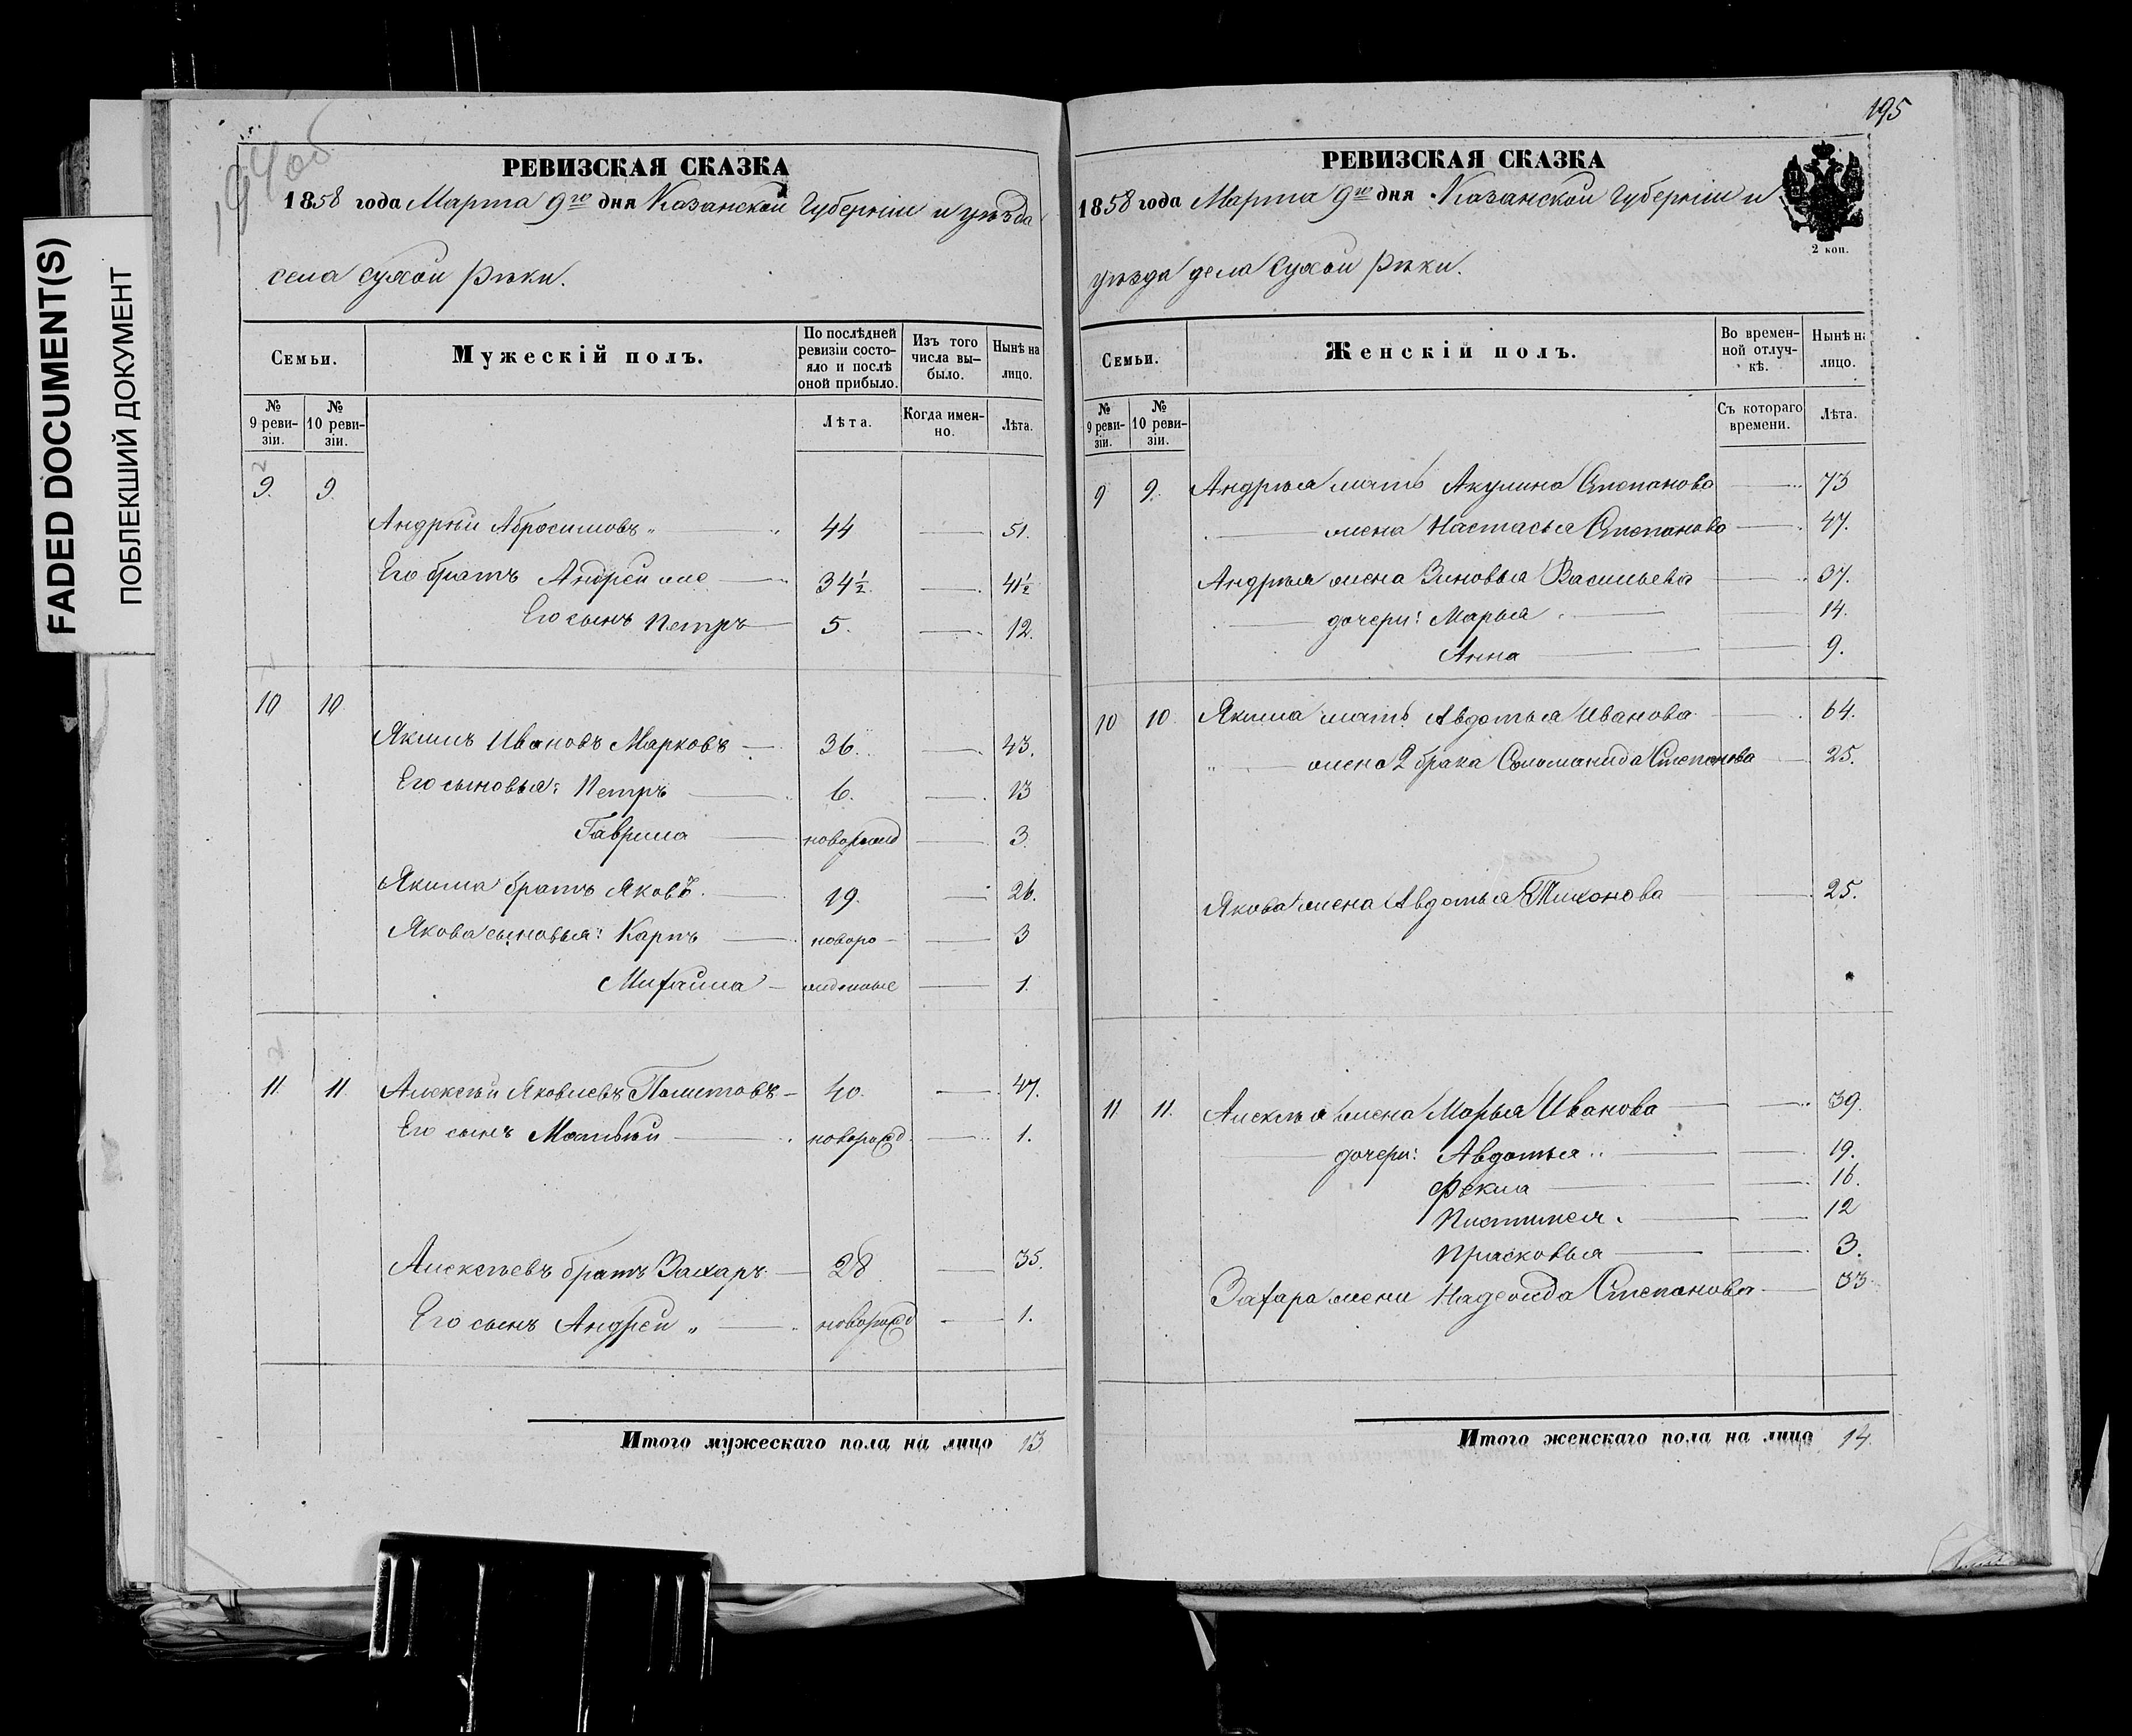 FADED DOCUMENT(S)
ПОБЛЕКШИЙ ДОКУМЕНТ
194об
РЕВИЗСКАЯ СКАЗКА
1858 года Марта 9го дня Казанской Губерніи и уѣзда
села Сухой Рѣки.
Семьи.
Мужескій полъ.
По послѣдней ревизіи состояло и послѣ оной прибыло.
Изъ того числа вы-было.
Нынѣ на лицо.
№ 9 реви-зіи.
№ 10 реви-зіи.
Лѣта.
Когда имен-но.
Лѣта.
9. 9.
Андрей Абросимовъ 44 51.
Его братъ Андрей же 34½ 41½
Его сынъ Петръ 5. 12.
10 10
Якимъ Ивановъ Марковъ 36. 43.
Его сыновья: Петръ 6. 13
Гаврила новорожд 3.
Якима братъ Яковъ 19. 26.
Якова сыновья: Карпъ новоро- 3
Михайла жденные 1.
11. 11. Алексѣй Яковлевъ 40. 47.
Его сынъ Матвѣй новорожд 1.
Алексѣевъ братъ Захаръ 28 35.
Его сынъ Андрей новорожд 1.
Итого мужескаго пола на лицо 13
195
РЕВИЗСКАЯ СКАЗКА
1858 года Марта 9го дня Казанской Губерніи и
2 коп.
уѣзда села Сухой Рѣки.
Семьи.
Женскій полъ.
Во времен-ной отлуч-кѣ.
Нынѣ на лицо.
№ 9 реви-зіи.
№ 10 реви-зіи.
Съ котораго времени.
Лѣта.
9 9. Андрея мать Акулина Степанова 73
жена Настасья Степанова 47.
Андрея жена Зиновья Васильева 37.
дочери: Марья 14.
Анна 9.
10 10. Якима мать Авдотья Иванова 64.
жена 2 брака Соломанида Степанова 25.
Якова жена Авдотья Тихонова 25.
11 11. Алексѣя жена Марья Иванова 39.
дочери: Авдотья 19.
Фекла 16.
Устинья 12
Прасковья 3.
Захара жена Надежда Степанова 33
Итого женскаго пола на лицо 14.